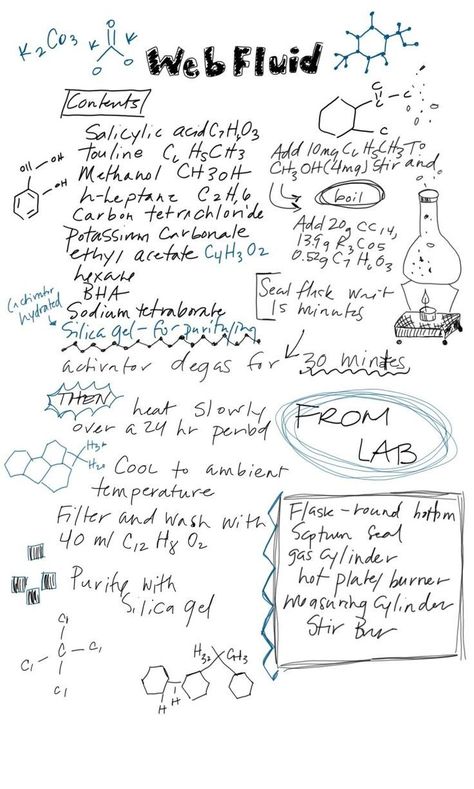 K2CO3
K
O
K
O
O
Web Fluid
Contents
Salicylic acid C7H6O3
Touline C6H5CH3
Methanol CH3OH
n-heptane C2H,6
Carbon tetrachloride
Potassium Carbonate
ethyl acetate C4H3O2
hexane
BHA
Sodium tetraborate
Silica gel - for purifying
(activator
hydrated)
OH
OH
OH
C
C
C
C
Add 10mg C6H5CH3 To
CH3OH (4mg) Stir and
boil
Add 20g CC14,
13.9g R3CO5
0.52g C7H6O3
Seal flask wait
15 minutes
activator degas for
30 mintes
THEN
heat slowly
over a 24 hr period
H3+
H20
COOL to ambient
temperature
FROM
LAB
Filter and Wash with
40 ml C12 H8 O2
Purify with
Silica gel
Cl
Cl
C
Cl
Cl
H32
CH3
H
H
Flask - round bottom
Septum Seal
gas cylinder
hot plate/burner
measuring cylinder
Stir Bar